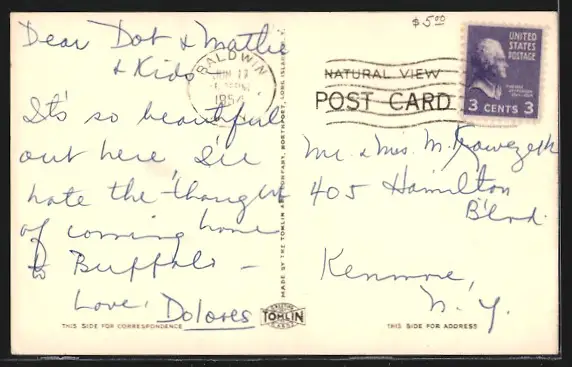 $5.00
Dear Dot & Mattie
& Kids
It's so beautiful
out here, I'll
hate the thought
of coming home
to Buffalo –
Love, Dolores
THIS SIDE FOR CORRESPONDENCE
BALDWIN
JUN 17
1954
MADE BY THE TOMLIN ART COMPANY, NORTHPORT, LONG ISLAND, N.Y.
TOMLIN
NATURAL VIEW
POST CARD
UNITED
STATES
POSTAGE
3 CENTS 3
Mr. & Mrs. M.
405 Hamilton
Blvd.
Kenmore,
N. Y.
THIS SIDE FOR ADDRESS